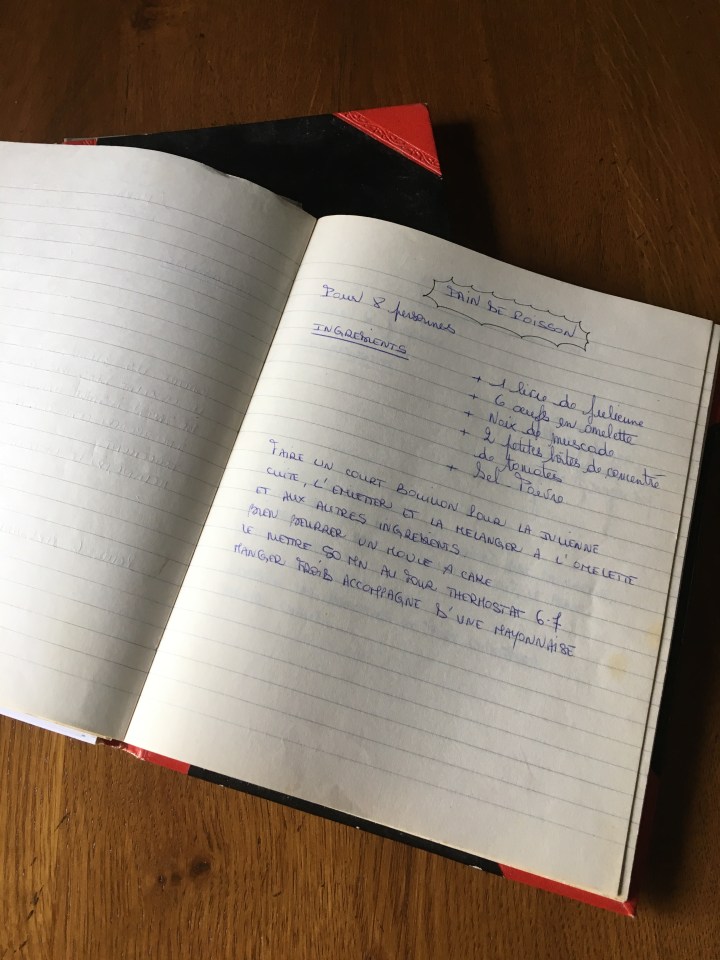 PAIN DE POISSON
Pour 8 personnes
INGREDIENTS
+ 1 livre de Julienne
+ 6 œufs en omelette
+ Noix de muscade
+ 2 petites boîtes de concentré
de tomates
+ Sel Poivre
FAIRE UN COURT BOUILLON POUR LA JULIENNE
CUITE, L'EMIETTER ET LA MELANGER A L'OMELETTE
ET AUX AUTRES INGREDIENTS
BIEN BEURRER UN MOULE A CAKE
LE METTRE 50 MN AU FOUR THERMOSTAT 6-7
MANGER FROID ACCOMPAGNE D'UNE MAYONNAISE